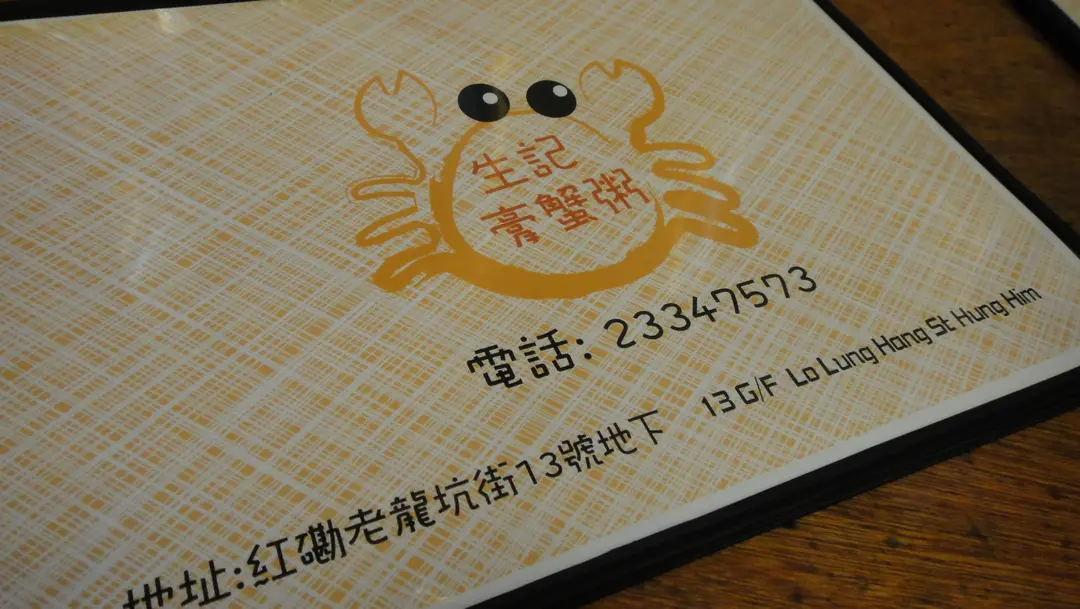 生記
膏蟹粥
電話: 23347573
地址:紅磡老龍坑街13號地下 13 G/F Lo Lung Hang St Hung Him